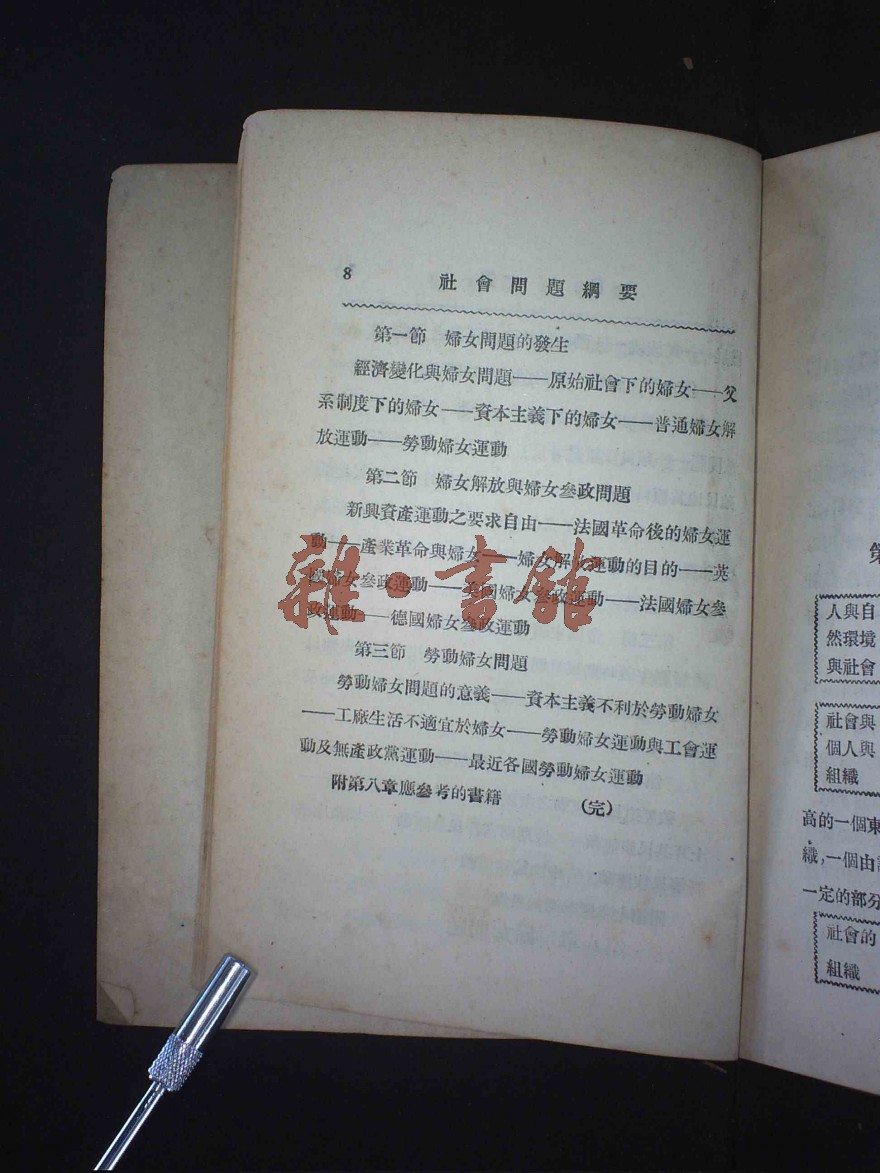 8 社會問題綱要
第一節 婦女問題的發生
經濟變化與婦女問題——原始社會下的婦女——父
系制度下的婦女——資本主義下的婦女——普通婦女解
放運動——勞動婦女運動
第二節 婦女解放與婦女參政問題
新興資產運動之要求自由——法國革命後的婦女運
動——產業革命與婦女——婦女解放運動的目的——英
國婦女參政運動——美國婦女參政運動——法國婦女參
政運動——德國婦女參政運動
第三節 勞動婦女問題
勞動婦女問題的意義——資本主義不利於勞動婦女
——工廠生活不適宜於婦女——勞動婦女運動與工會運
動及無產政黨運動——最近各國勞動婦女運動
附第八章應參考的書籍 (完)
雜·書館
第
人與自
然環境
與社會
社會與
個人與
組織
高的一個東
織，一個由
一定的部分
社會的
組織